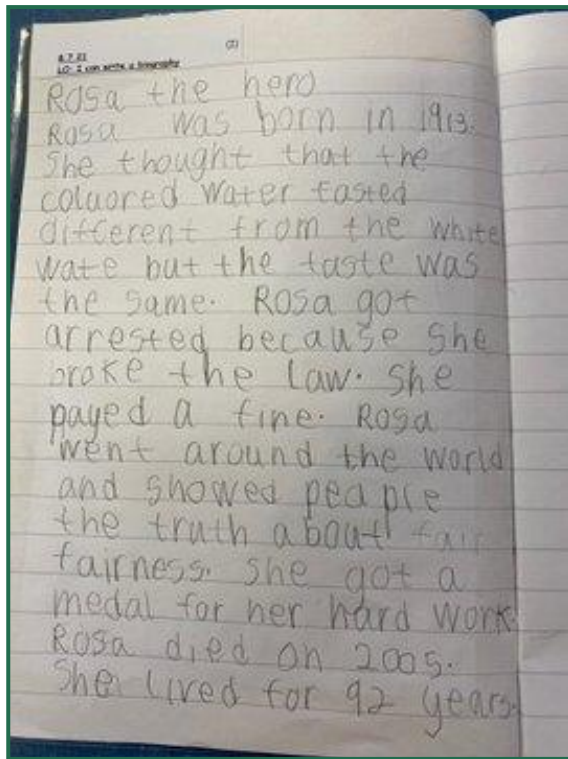 (2)
8.7.21
LO: I can write a biography
Rosa the hero
Rosa was born in 1913.
She thought that the
coluored water tasted
different from the white
wate but the taste was
the same. Rosa got
arrested because she
broke the law. She
payed a fine. Rosa
went around the world
and showed people
the truth about fair
fairness. She got a
medal for her hard work.
Rosa died on 2005.
She lived for 92 years.